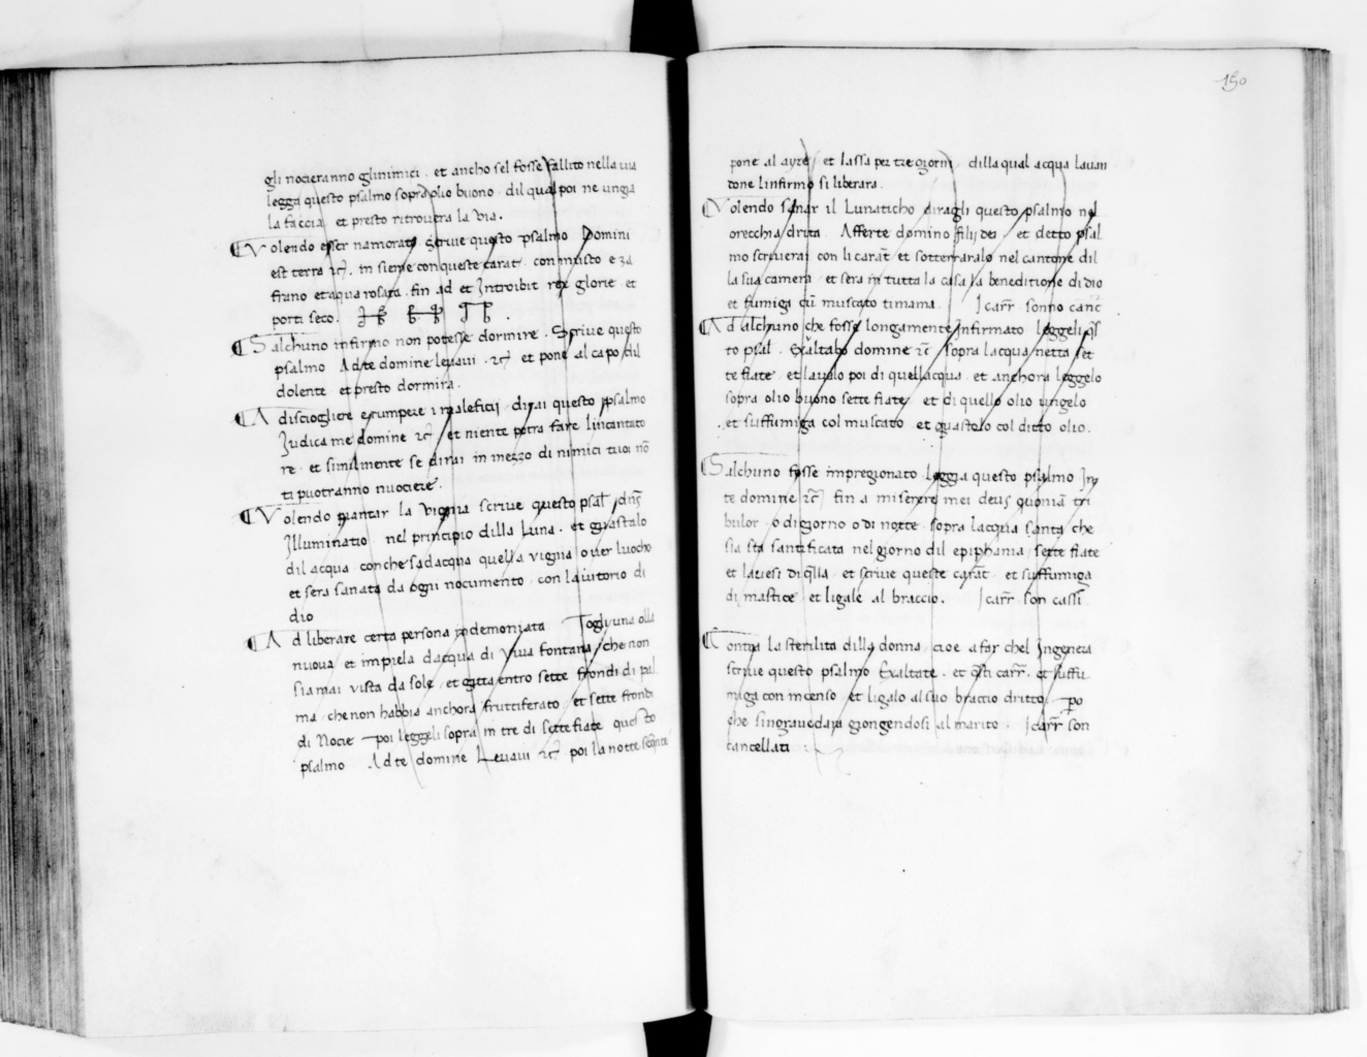 gli nocieranno glinimici . et ancho sel fosse fallito nella uia
legga questo psalmo sopra olio buono . dil qual poi ne ungia
la faccia et presto ritrouera la Via .
Volendo esser namorato scriue questo psalmo Domini
est terra ⁊c̃ . in sieme con queste carat . con musto e za
frano et aqua rosata . fin ad et Introibit rex glorie et
porti seco .
Salchuno infirmo non potesse dormire . Scriue questo
psalmo Ad te domine leuaui . ⁊c̃ et pone al capo dil
dolente et presto dormira .
A disciogliere e rumpere i maleficij . dirai questo psalmo
Judica me domine ⁊c̃ et niente potra fare lincantato
re . et similmente se dirai in mezzo di nimici tuoi nõ
ti puotranno nuocere .
Volendo piantar la vigna scriue questo psal̃ dñs
Illuminatio . nel principio dilla Luna . et guastalo
dil acqua con che sadacqua quella vigna ouer luocho
et sera sanata da ogni nocumento con laiutorio di
dio
Ad liberare certa persona indemoniata Togli una olla
nuoua et impiela dacqua di Viua fontana che non
sia mai vista da sole . et gitta entro sette frondi di pal
ma . che non habbia anchora fruttiferato et sette frondi
di Noce poi leggeli sopra in tre di sette fiate questo
psalmo Ad te domine Leuaui ⁊c̃ poi la notte sequente
150
pone al ayre et lassa per tre giorni dilla qual acqua lauan
done linfirmo si liberara .
Volendo sanar il Lunaticho diragli questo psalmo nel
orecchia drita . Afferte domino filij dei et detto psal
mo scriuerai con li carat̃ et sotterraralo nel cantone dil
la sua camera et sera in tutta la casa la beneditione di dio
et fumiga cũ muscato timama . I carr̃ sonno canc̃
Ad alchuno che fosse longamente Infirmato leggeli q̃s
to psal . Exaltabo domine ⁊c̃ sopra lacqua netta set
te fiate et laualo poi di quellacqua . et anchora leggelo
sopra olio buono sette fiate et di quello olio ungelo
. et suffumiga col muscato et guastolo col ditto olio .
Salchuno fosse impregionato leggia questo psalmo In
te domine ⁊c̃ fin a miserere mei deus quoniã tri
bulor o di giorno o di notte sopra lacqua santa che
sia sta santificata nel giorno dil epiphania sette fiate
et lauesi di q̃lla et scriue queste carat̃ et suffumiga
di mastice et ligale al braccio . I carr̃ son cassi
Contra la sterilita dilla donna cioe a far chel Ingenera
scriue questo psalmo Exaltate . et q̃sti carr̃ . et suffu
miga con incenso et ligalo al suo braccio dritto po
che singrauedara giongendosi al marito . I carr̃ son
cancellati